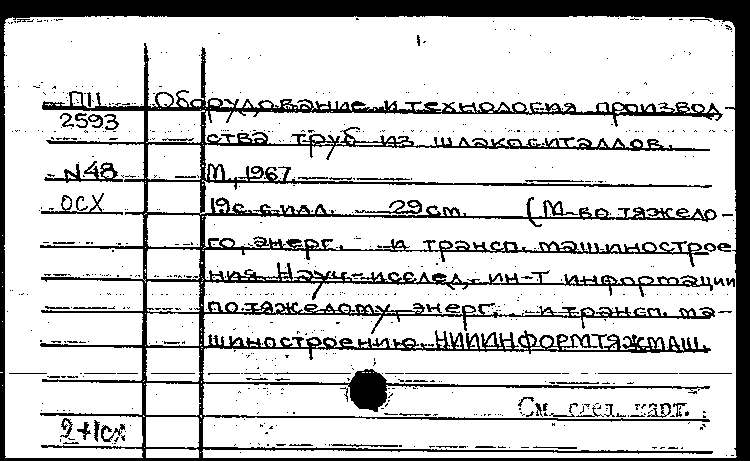 1.
ПII Оборудование и технология производ-
2593 ства труб из шлакоситаллов.
N48 М., 1967.
осх 19с. с илл. 29см. (М-во тяжело-
го, энерг. и трансп. машинострое
ния Науч-исслед. ин-т информации
по тяжелому, энерг. и трансп. ма-
шиностроению. НИИИНФОРМТЯЖМАШ.
См. след. карт.
2+1сх